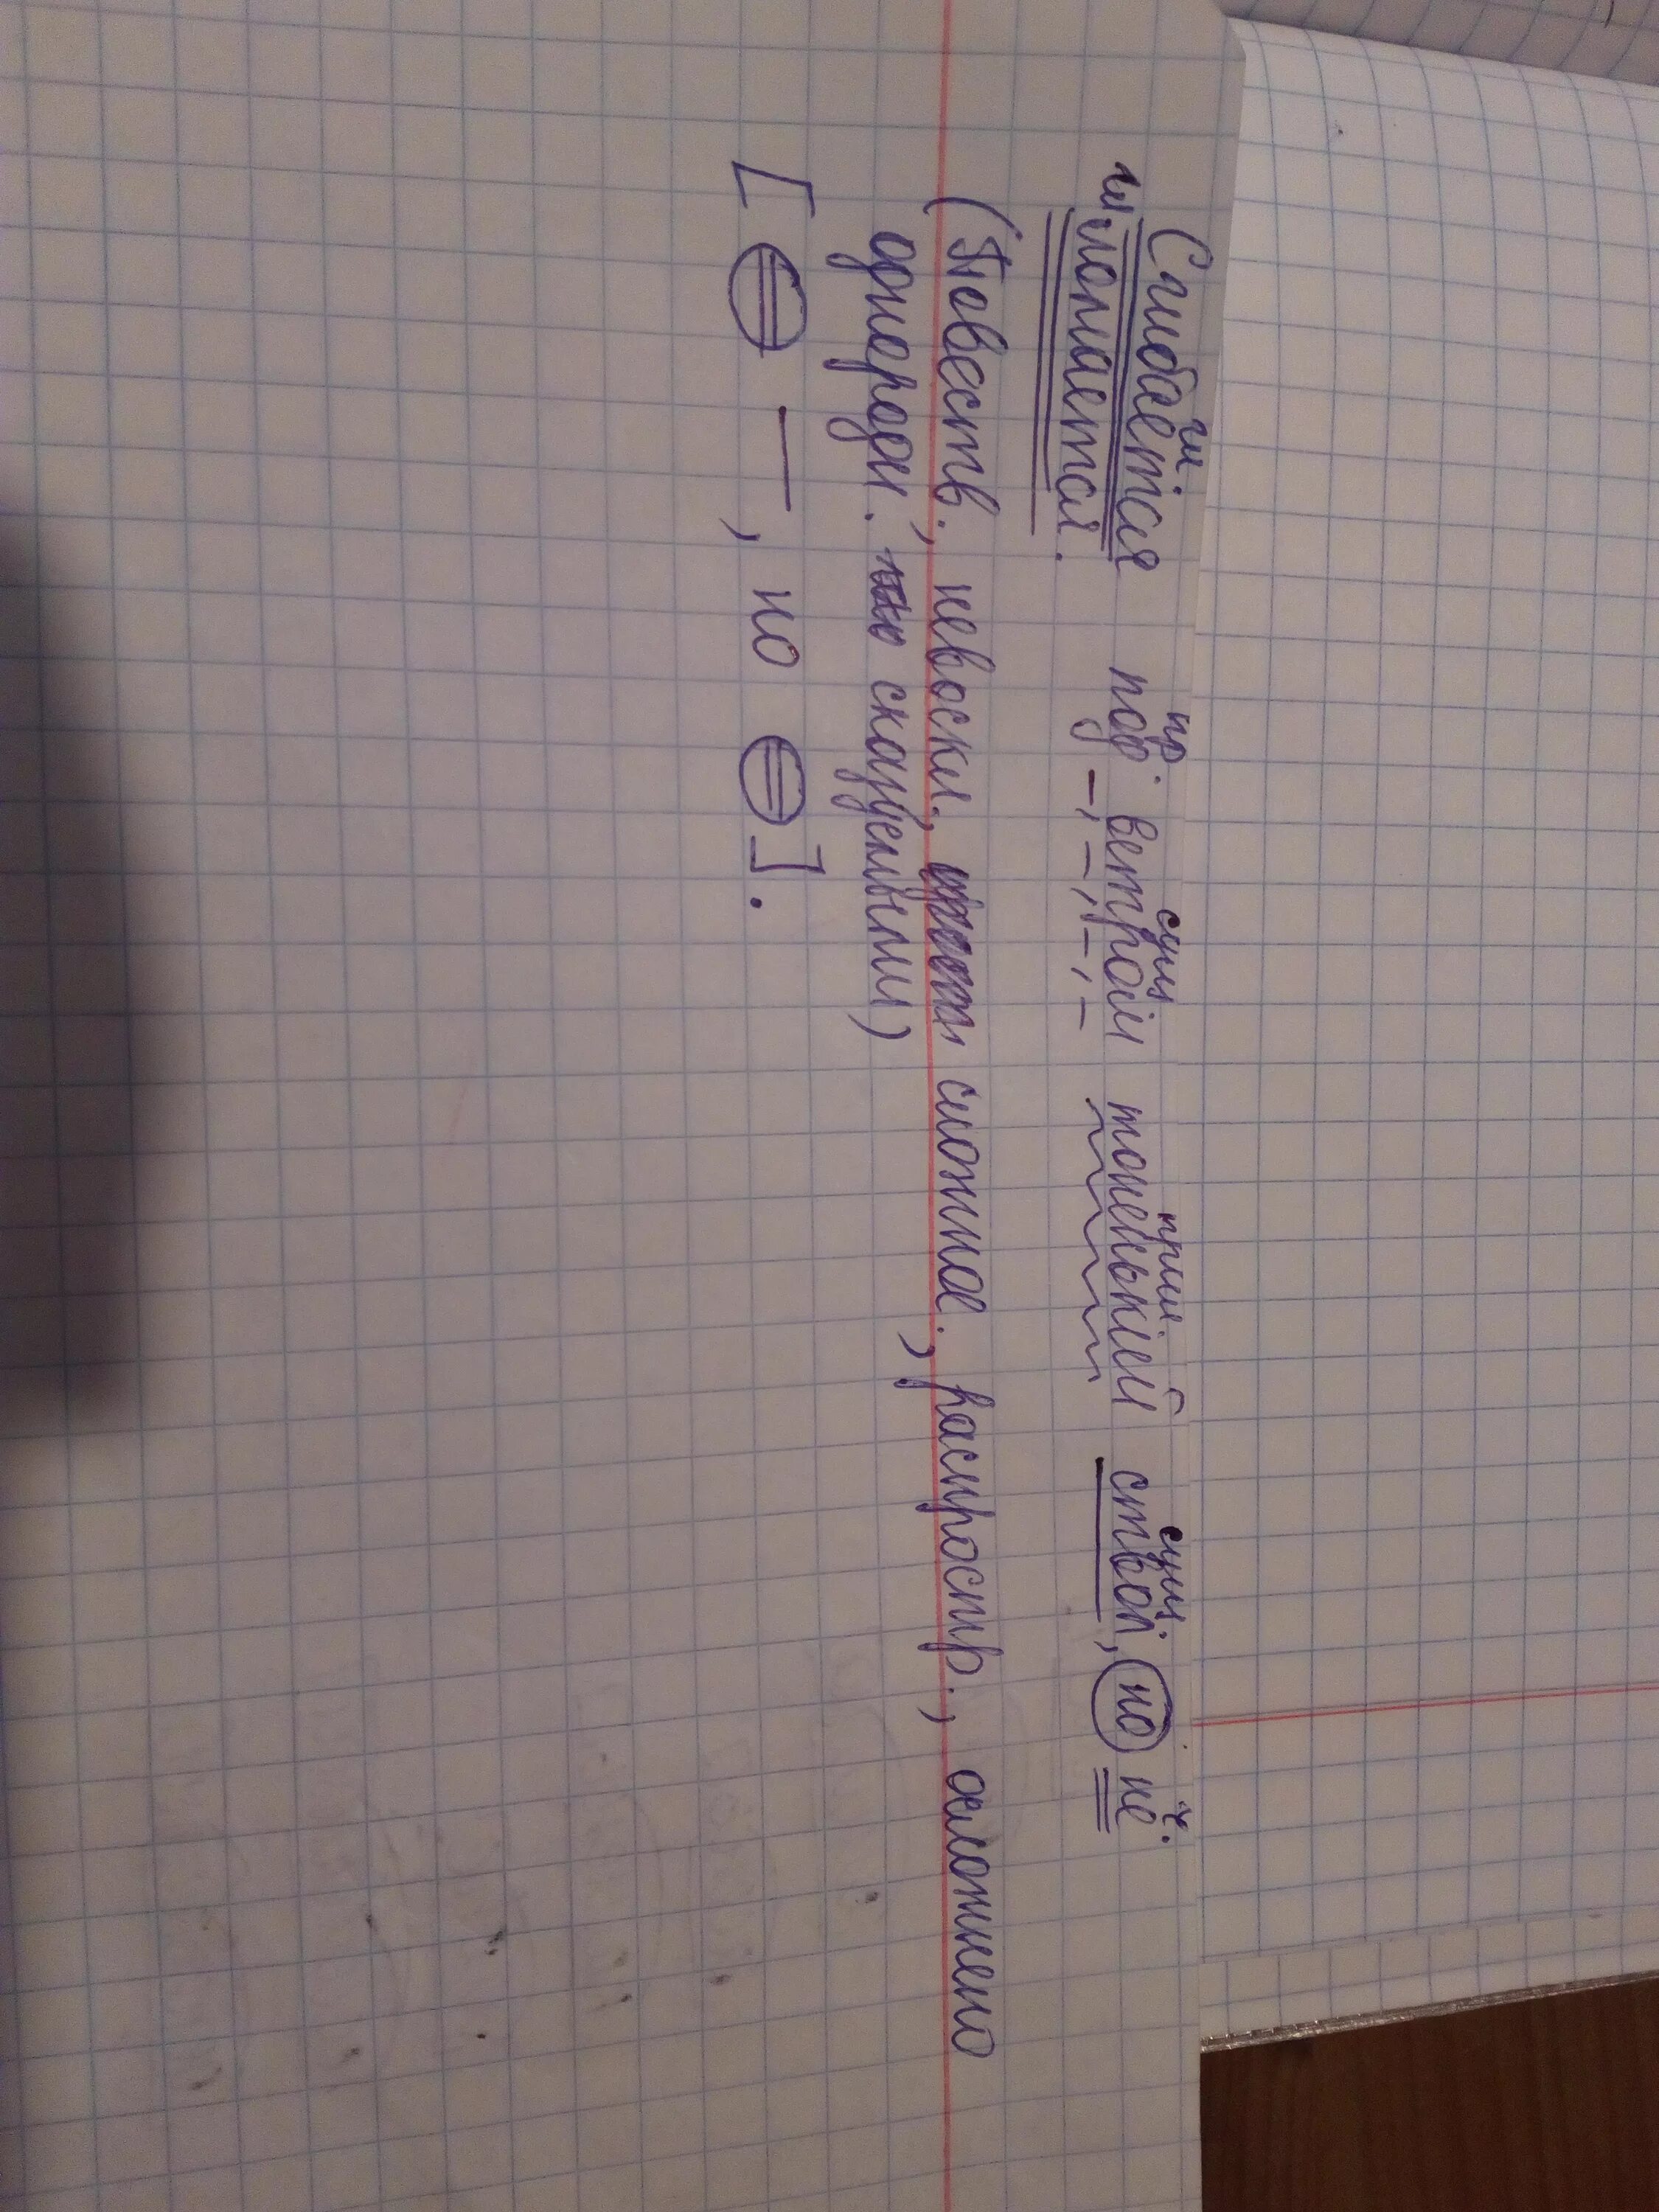 гл. пр. сущ прил. сущ. ч.
Сгибается под ветром тоненький ствол, но не
гл. ломается.
(Повеств., невоскл., сложное., распростр., осложнено
однородн. сказуемыми)
[ —, но ].